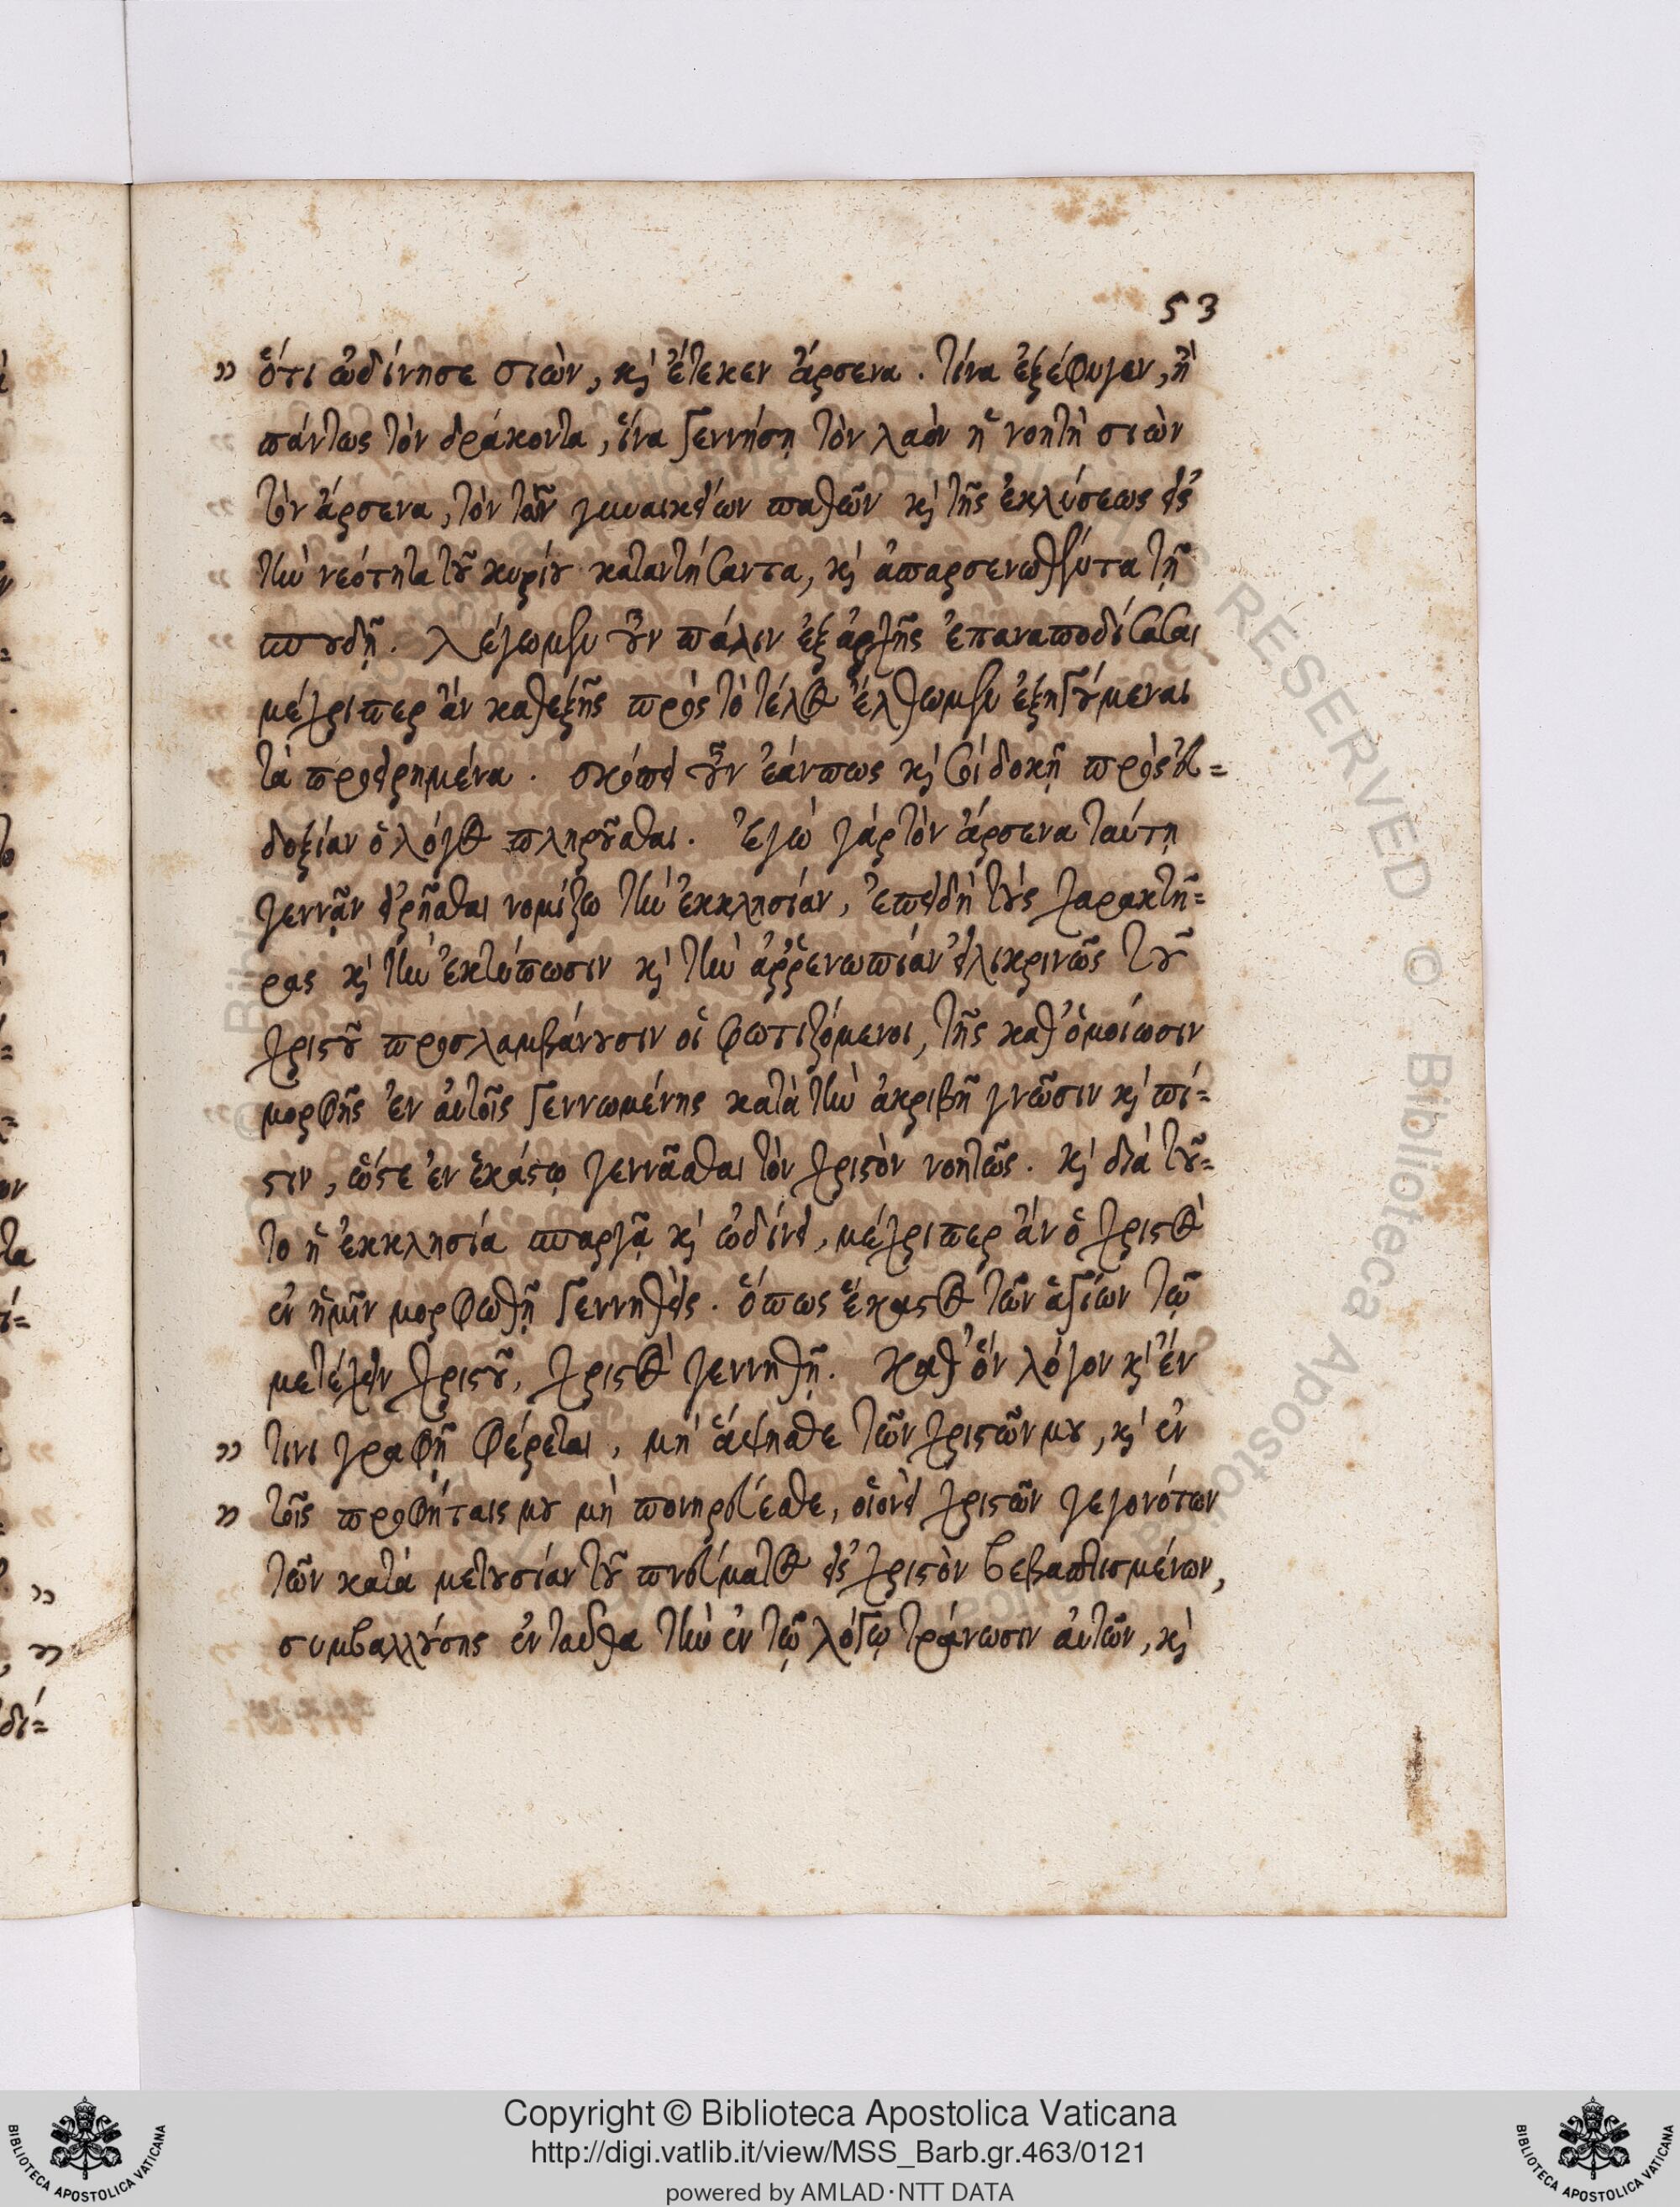 53
" ὅτι ὠδίνησε σιὼν, καὶ ἔτεκεν ἄρσενα. τίνα ἐξέφυγεν, ἢ
πάντως τὸν δράκοντα, ἵνα γεννήσῃ τὸν λαὸν ἡ νοητὴ σιὼν
τὸν ἄρσενα, τὸν τῶν γυναικείων παθῶν καὶ τῆς ἐκλύσεως εἰς
τὴν νεότητα τοῦ κυρίου καταντήσαντα, καὶ ἀπαρσενωθέντα τῇ
σπουδῇ. λέγωμεν οὖν πάλιν ἐξ ἀρχῆς ἐπαναποδίσασαι
μέχριπερ ἂν καθεξῆς πρὸς τὸ τέλος ἔλθωμεν ἐξηγούμεναι
τὰ προειρημένα. σκόπει οὖν ἐάνπως καὶ σοὶ δοκῇ πρὸς εὐ=
δοξίαν ὁ λόγος πληροῦσθαι. Ἐγὼ γὰρ τὸν ἄρσενα ταύτῃ
γεννᾷν εἰρῆσθαι νομίζω τὴν ἐκκλησίαν, ἐπειδὴ τοὺς χαρακτῆ=
ρας καὶ τὴν ἐκτύπωσιν καὶ τὴν ἀῤῥενωπίαν εἰλικρινῶς τοῦ
χριστοῦ προσλαμβάνουσιν οἱ φωτιζόμενοι, τῆς καθ' ὁμοίωσιν
μορφῆς ἐν αὐτοῖς γεννωμένης κατὰ τὴν ἀκριβῆ γνῶσιν καὶ πί=
στιν, ὥστε ἐν ἑκάστῳ γεννᾶσθαι τὸν χριστὸν νοητῶς. καὶ διὰ τοῦ=
το ἡ ἐκκλησία σπαργᾷ καὶ ὠδίνει, μέχριπερ ἂν ὁ χριστὸς
ἐν ἡμῖν μορφωθῇ γεννηθείς. ὅπως ἕκαστος τῶν ἁγίων τῷ
μετέχειν χριστοῦ, χριστὸς γεννηθῇ. Καθ' ὃν λόγον καὶ ἔν
" τινι γραφῇ φέρεται, μὴ ἅψησθε τῶν χριστῶν μου, καὶ ἐν
" τοῖς προφήταις μου μὴ πονηρεύεσθε, οἱονεὶ χριστῶν γεγονότων
τῶν κατὰ μετουσίαν τοῦ πνεύματος εἰς χριστὸν βεβαπτισμένων,
συμβαλλούσης ἐνταῦθα τὴν ἐν τῷ λόγῳ τράνωσιν αὐτῶν, καὶ
Copyright © Biblioteca Apostolica Vaticana
http://digi.vatlib.it/view/MSS_Barb.gr.463/0121
powered by AMLAD·NTT DATA